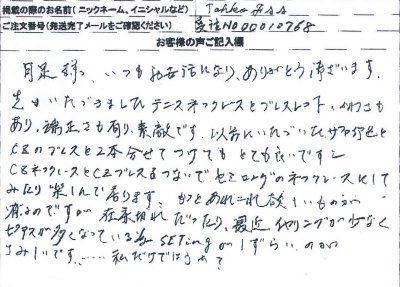 掲載の際のお名前(ニックネーム、イニシャルなど)
ご注文番号(発送完了メールをご確認ください) 受注NO00010768
お客様の声ご記入欄
様、いつもお世話になり、ありがとう御座います。
先日いただきましたテニスネックレスとブレスレット、かわいさも
あり、端正さも有り、素敵です。以前にいただいた
CZのブレスと2本合せてつけてもとてもいいですし
CZネックレスとCZブレスをつないでセミロングのネックレスにして
みたり楽しんで居ります。もっとあれこれ欲しいものが
有るのですが在庫切れだったり、最近イヤリングが少なく
ピアスが多くなっている為
みたいです。……私だけでしょうか?